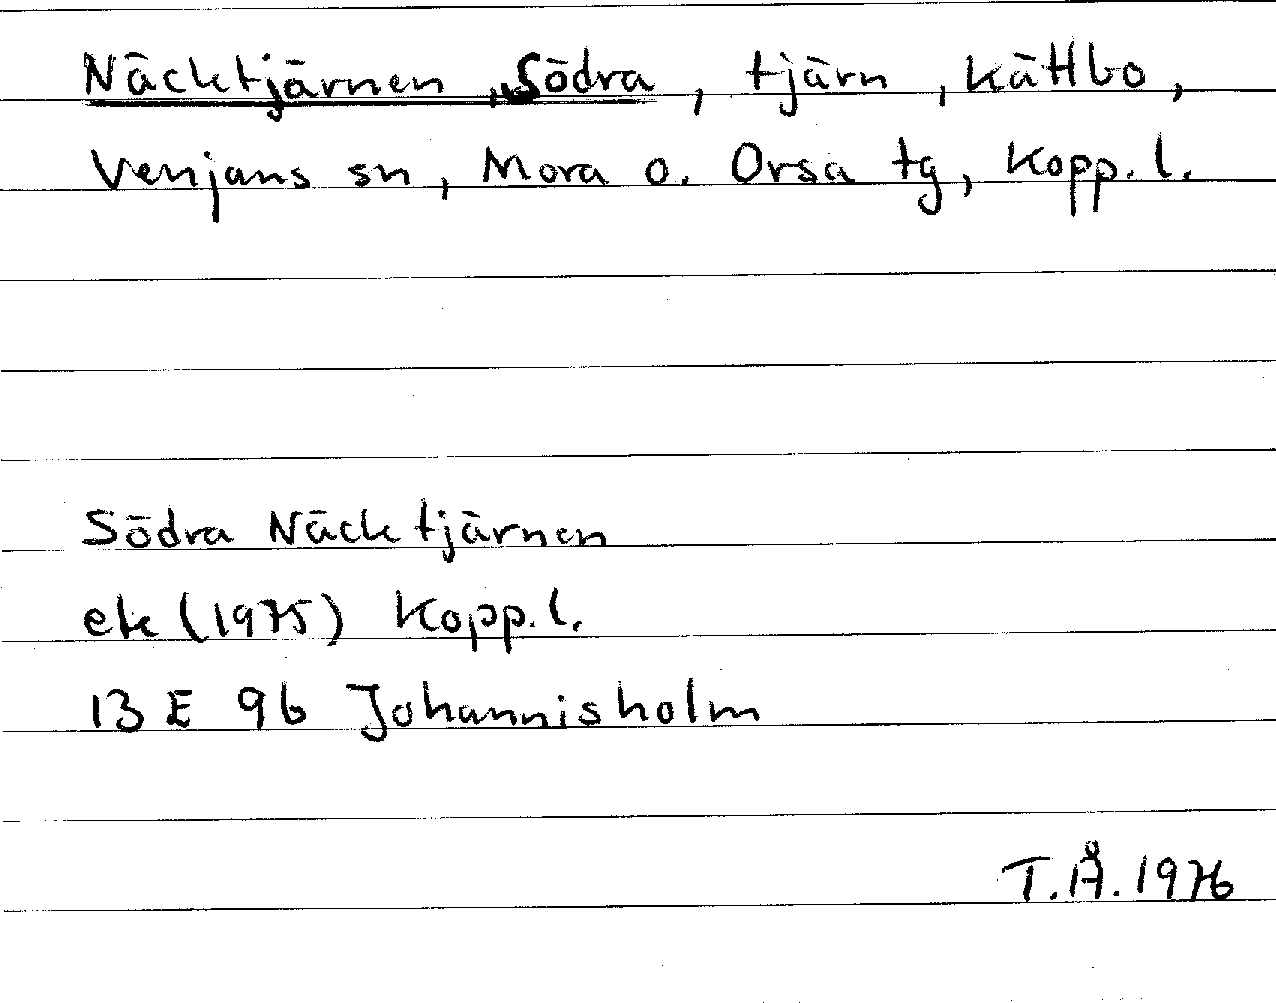 Näcktjärnen, Södra, tjärn, Kättbo,
Venjans sn, Mora o. Orsa tg, Kopp. l.
Södra Näcktjärnen
ek (1975) Kopp. l.
13 E 9b Johannisholm
T.Å. 1976